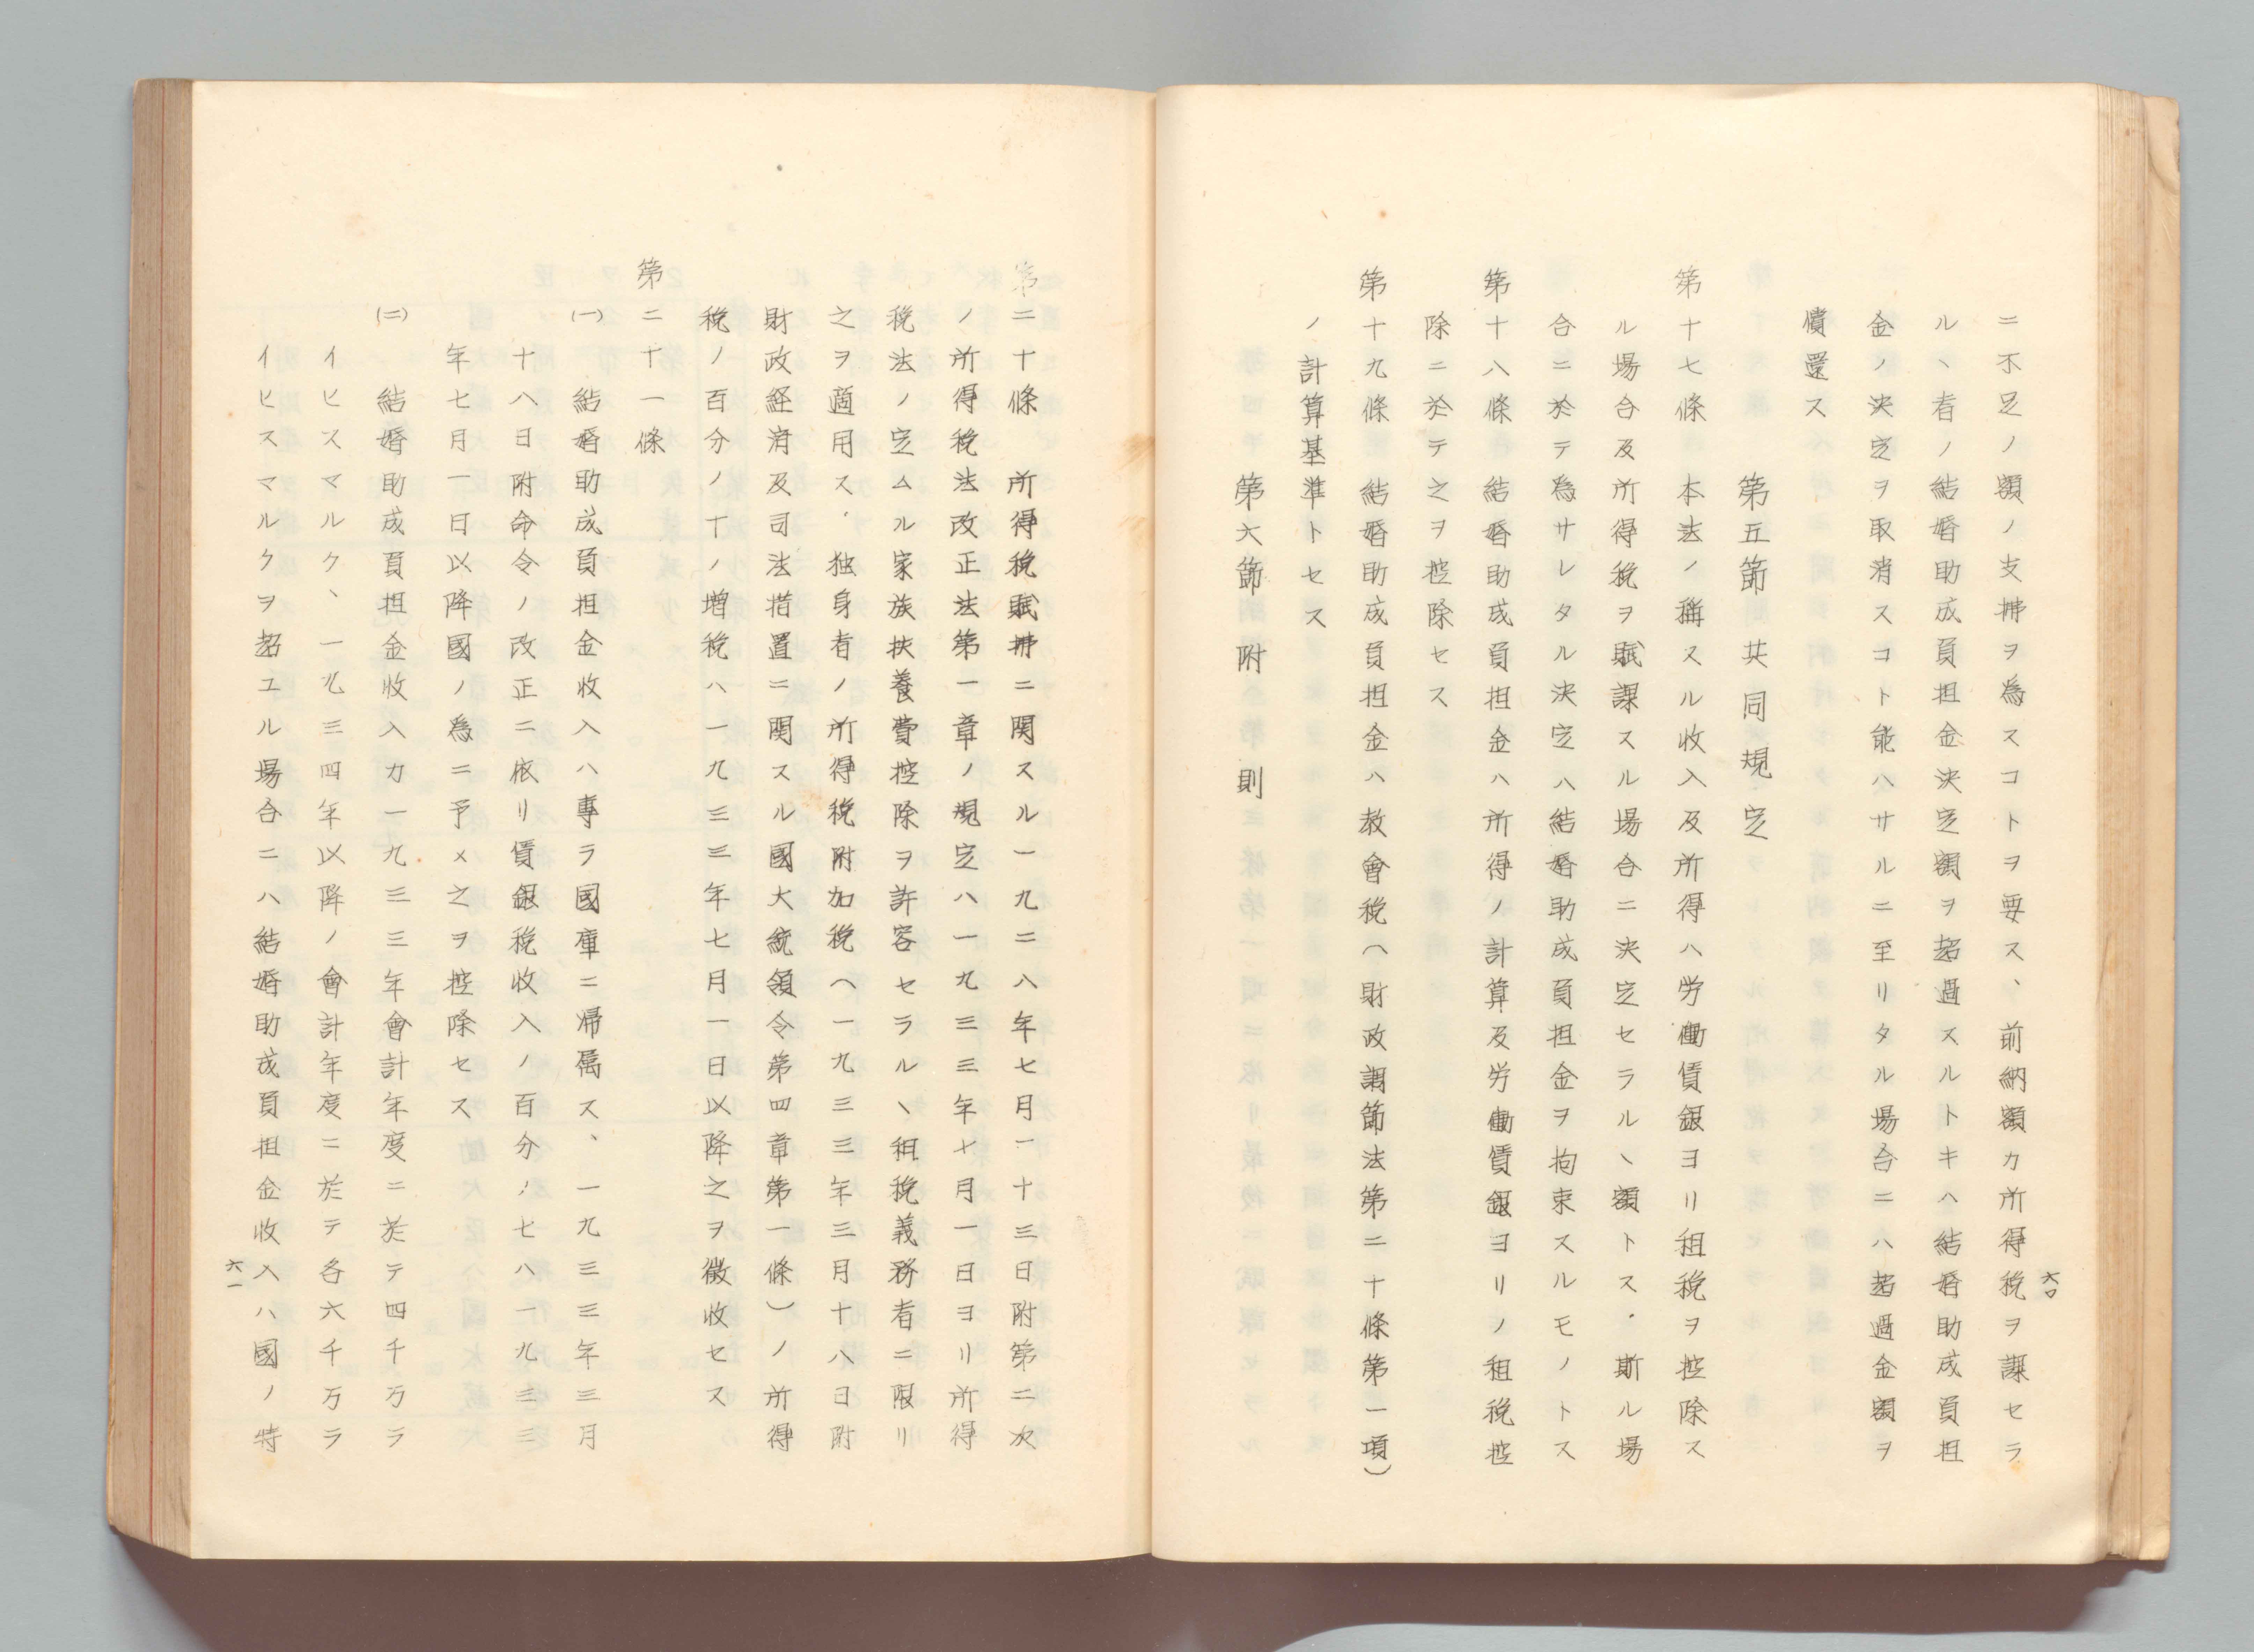 ニ不足ノ額ノ支拂ヲ為スコトヲ要ス、前納額カ所得税ヲ課セラ
ルヽ者ノ結婚助成負担金決定額ヲ超過スルトキハ結婚助成負担
金ノ決定ヲ取消スコト能ハサルニ至リタル場合ニハ超過金額ヲ
償還ス
第五節 共同規定
第十七條 本法ノ稱スル收入及所得ハ労働賃銀ヨリ租税ヲ控除ス
ル場合及所得税ヲ賦課スル場合ニ決定セラルヽ額トス．斯ル場
合ニ於テ為サレタル決定ハ結婚助成負担金ヲ拘束スルモノトス
第十八條 結婚助成負担金ハ所得ノ計算及労働賃銀ヨリノ租税控
除ニ於テ之ヲ控除セス
第十九條 結婚助成負担金ハ教會税（財政調節法第二十條第一項）
ノ計算基準トセス
第六節 附則
六〇
第二十條 所得税賦拂ニ関スル一九二八年七月二十三日附第二次
ノ所得税法改正法第一章ノ規定ハ一九三三年七月一日ヨリ所得
税法ノ定ムル家族扶養費控除ヲ許容セラルヽ租税義務者ニ限リ
之ヲ適用ス．独身者ノ所得税附加税（一九三三年三月十八日附
財政経済及司法措置ニ関スル國大統領令第四章第一條）ノ所得
税ノ百分ノ十ノ増税ハ一九三三年七月一日以降之ヲ徴收セス
第二十一條
(一) 結婚助成負担金收入ハ專ラ國庫ニ帰属ス、一九三三年三月
十八日附命令ノ改正ニ依リ賃銀税收入ノ百分ノ七ハ一九三三
年七月一日以降國ノ為ニ予メ之ヲ控除セス
(二) 結婚助成負担金收入カ一九三三年會計年度ニ於テ四千万ラ
イヒスマルク、一九三四年以降ノ會計年度ニ於テ各六千万ラ
イヒスマルクヲ超ユル場合ニハ結婚助成負担金收入ハ國ノ特
六一